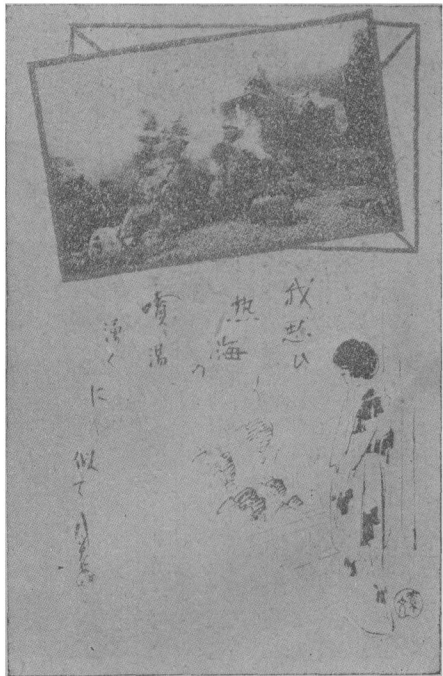 我想ひ
熱海
の
噴湯
湧く
に
似て